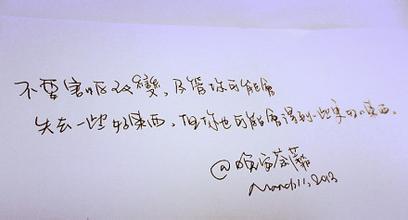 不要害怕改變,尽管你可能會
失去一些好東西,但你也可能會得到一些更好的東西。
@晚安茉莉
March 11, 2013